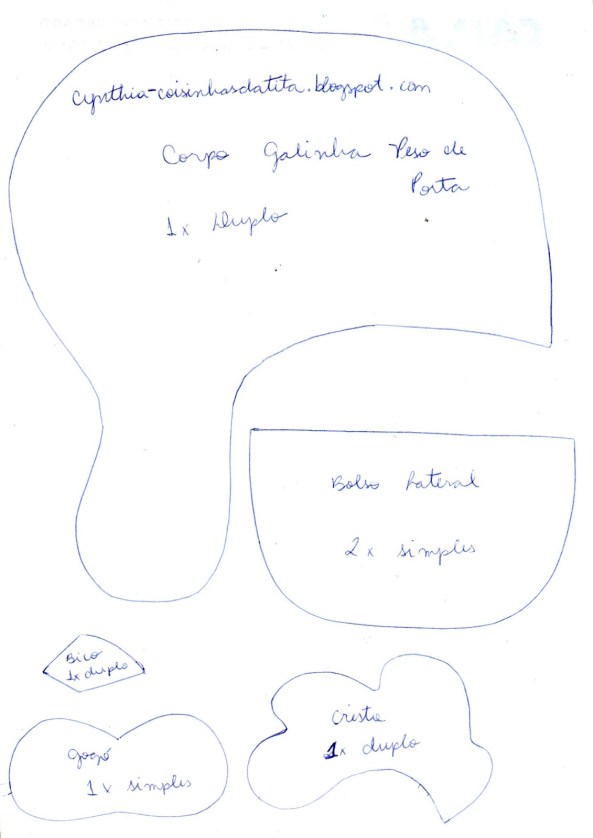 cynthia-coisinhasdatita.blogspot.com
Corpo Galinha Peso de
Porta
1x Duplo
Bolso Lateral
2x simples
Bico
1x duplo
Crista
1x duplo
gogó
1x simples